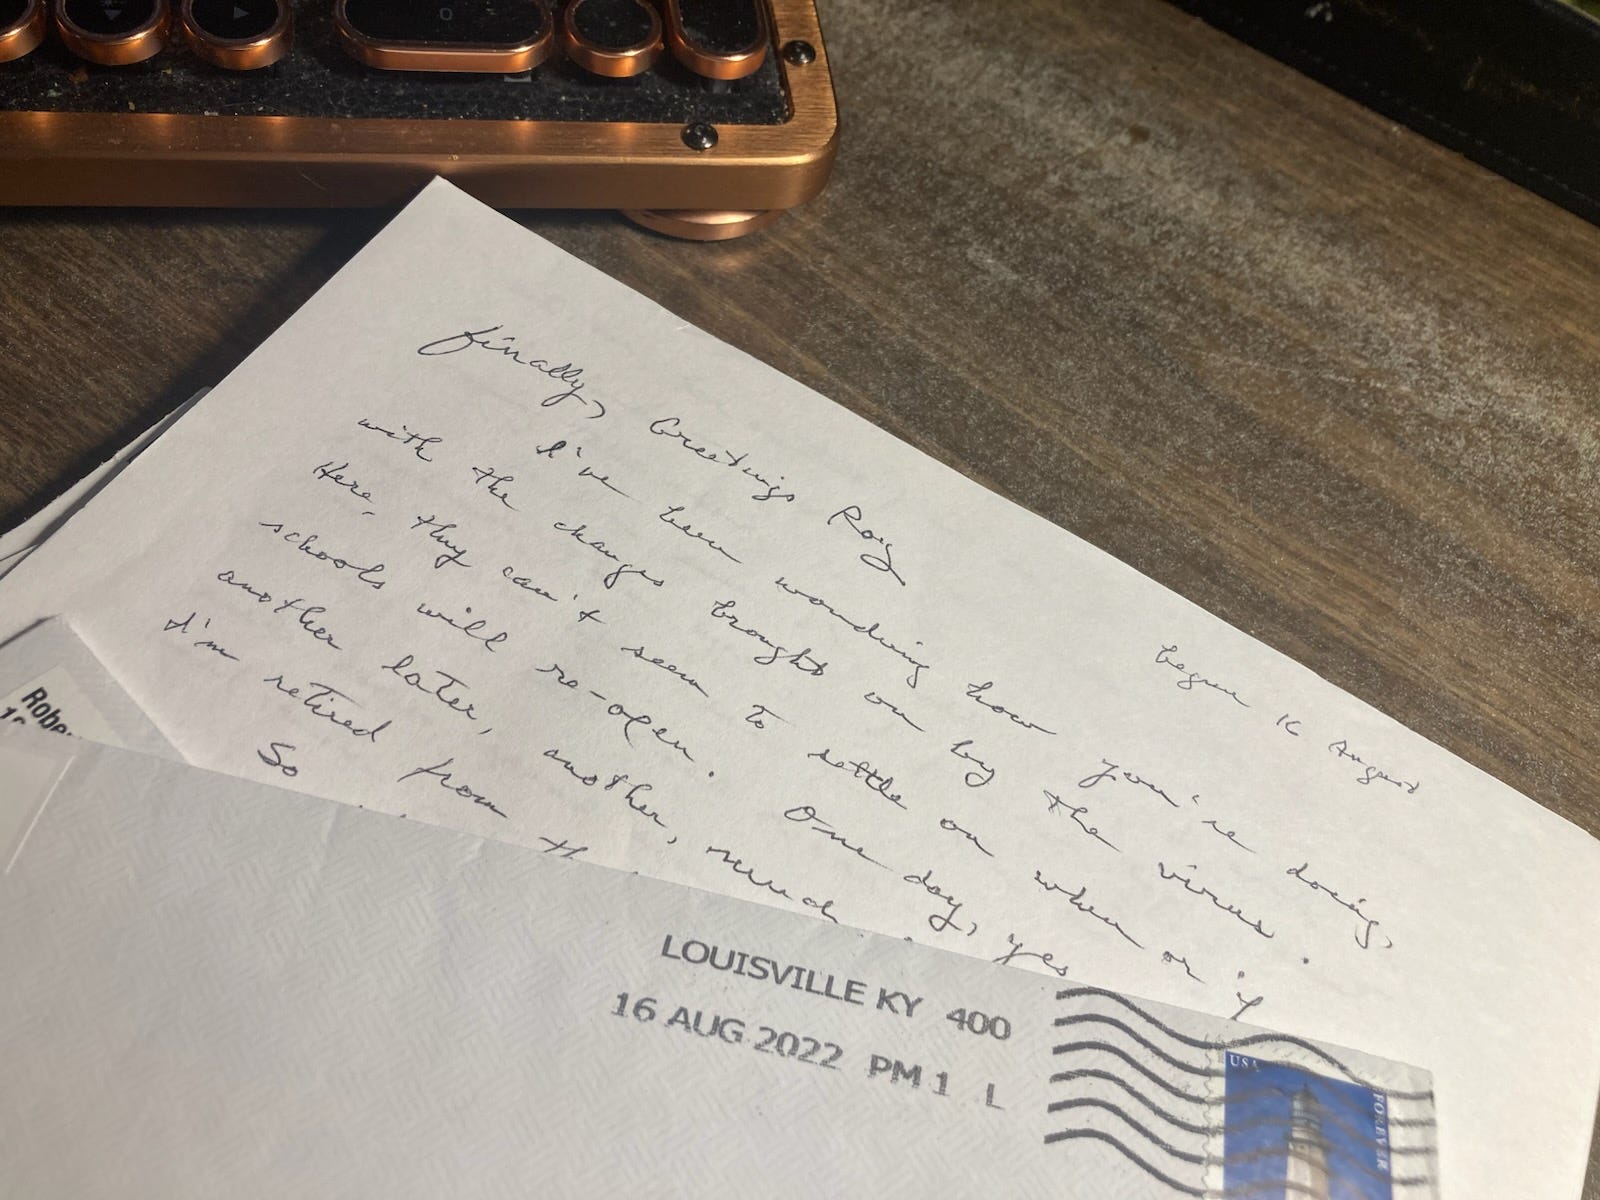 0
begun 16 August
finally, Greetings Roy
I've been wondring how you're doing,
with the changes brought on by the virus.
Here, they can't seem to settle on when or if
schools will re-open. One day, yes
another later, another,
I'm retired from th
So
Robe
LOUISVILLE KY 400
16 AUG 2022 PM 1 L
USA
FOREVER